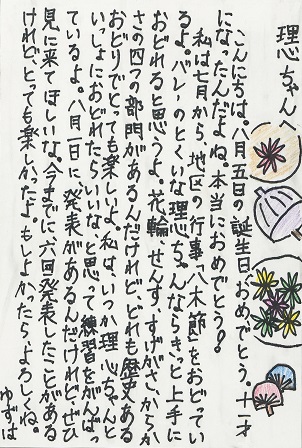 理恵ちゃんへ
こんにちは。八月五日の誕生日、おめでとう。十一才
になったんだよね。本当におめでとう!
私は七月から、地区の行事「八木節」をおどってい
るよ。バレーのとくいな理恵ちゃんならきっと上手に
おどれると思うよ。花輪、せんす、すげがさ、からか
さの四つの部門があるんだけれど、どれも歴史ある
おどりでとっても楽しいよ。私は、いつか理恵ちゃんと
いっしょにおどれたらいいな、と思って練習をがんばっ
ているよ。八月一日に発表があるんだけれど、ぜひ
見に来てほしいな。今までに六回発表したことがある
けれど、とっても楽しかったよ。もしよかったら、よろしくね。
ゆずは